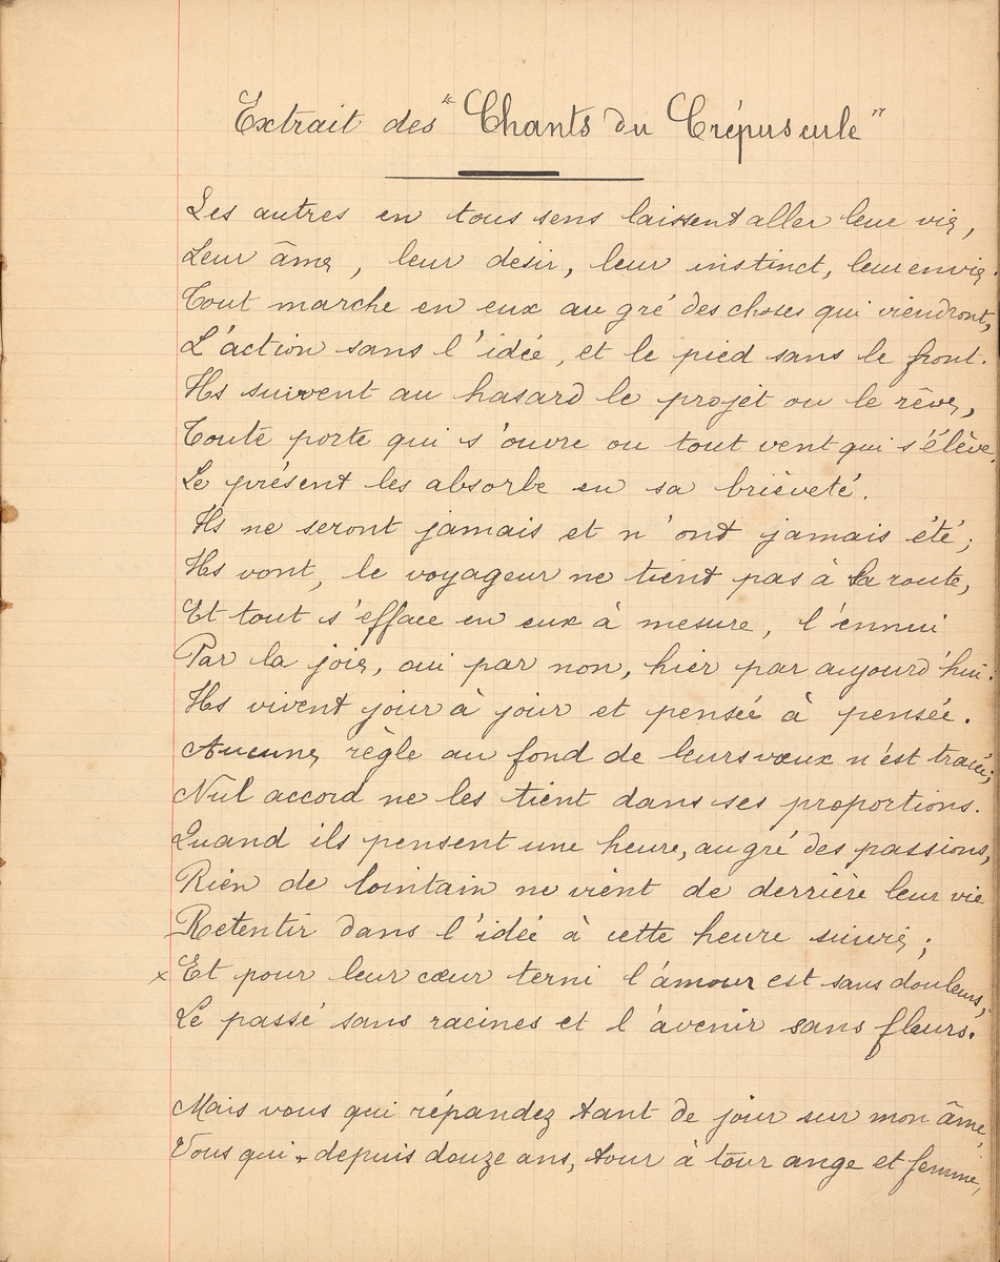 Extrait des "Chants du Crépuscule"
Les autres en tous sens laissent aller leur vie,
Leur âme, leur désir, leur instinct, leur envie.
Tout marche en eux au gré des choses qui viendront,
L'action sans l'idée, et le pied sans le front.
Ils suivent au hasard le projet ou le rêve,
Toute porte qui s'ouvre ou tout vent qui s'élève.
Le présent les absorbe en sa brièveté.
Ils ne seront jamais et n'ont jamais été;
Ils vont, le voyageur ne tient pas à la route,
Et tout s'efface en eux à mesure, l'ennui
Par la joie, oui par non, hier par aujourd'hui.
Ils vivent jour à jour et pensée à pensée.
Aucune règle au fond de leurs vœux n'est tracée;
Nul accord ne les tient dans ses proportions.
Quand ils pensent une heure, au gré des passions,
Rien de lointain ne vient de derrière leur vie
Retentir dans l'idée à cette heure suivie;
x Et pour leur cœur terni l'amour est sans douleurs,
Le passé sans racines et l'avenir sans fleurs.
Mais vous qui répandez tant de jour sur mon âme,
Vous qui, depuis douze ans, tour à tour ange et femme,